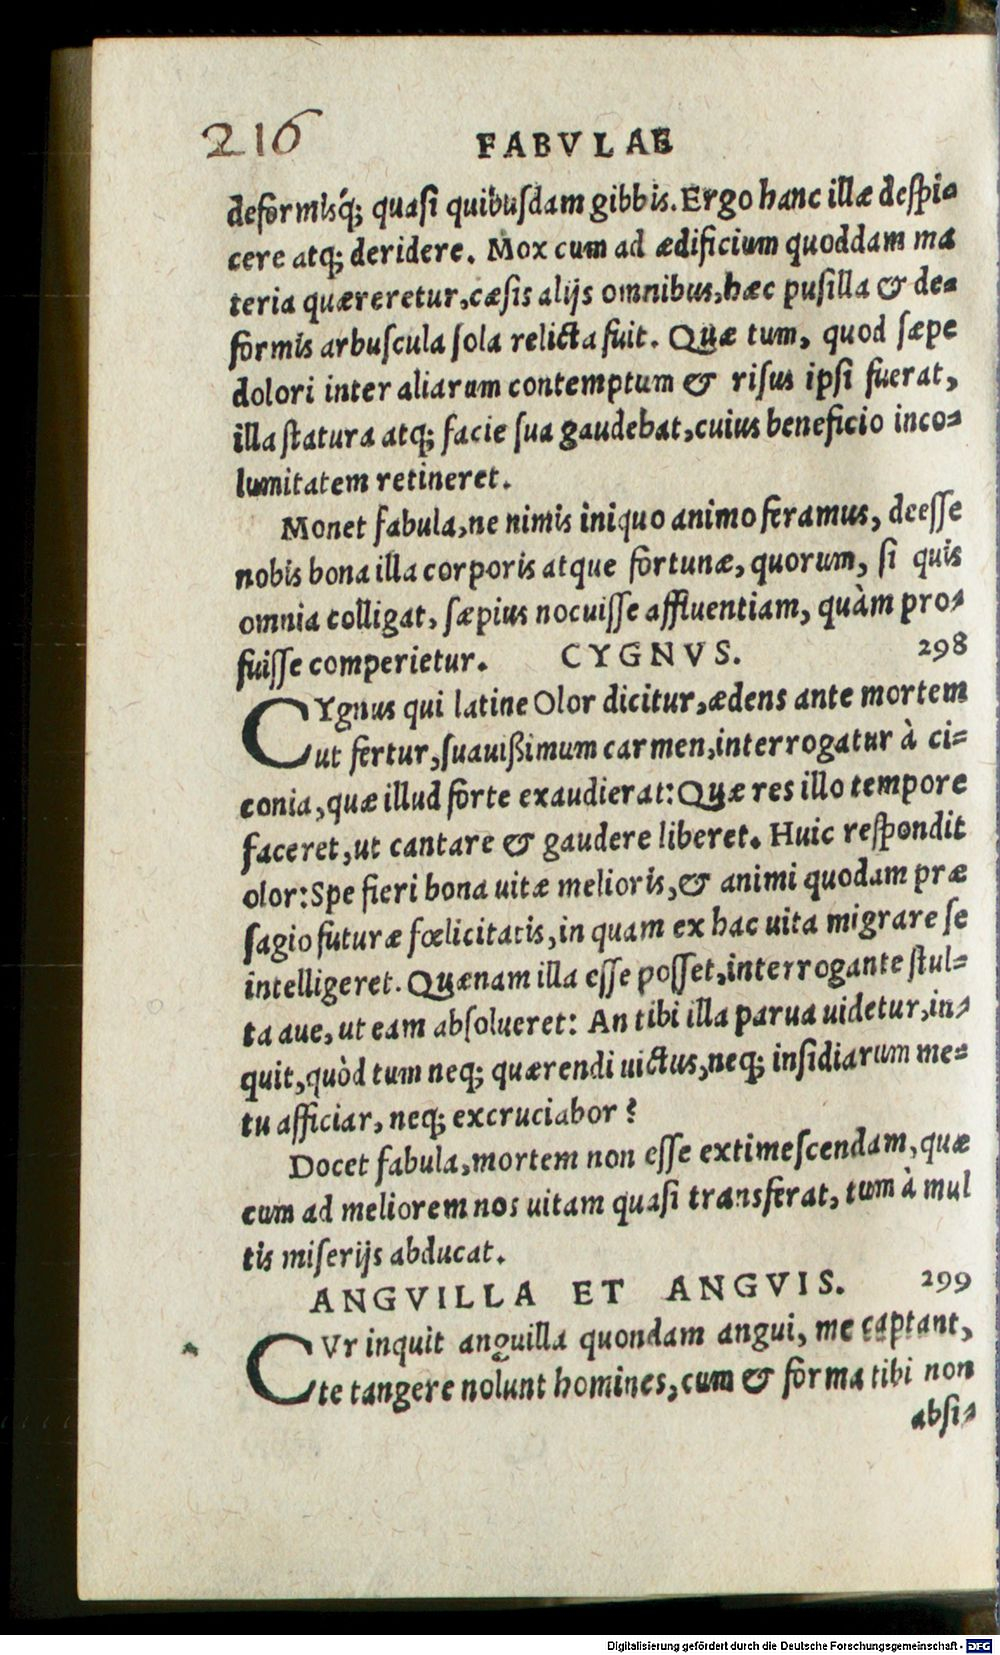 216
FABVLAE
deformisq́; quasi quibusdam gibbis. Ergo hanc illæ despi-
cere atq; deridere. Mox cum ad ædificium quoddam ma
teria quæreretur, cæsis alijs omnibus, hæc pusilla & de-
formis arbuscula sola relicta fuit. Quæ tum, quod sæpe
dolori inter aliarum contemptum & risus ipsi fuerat,
illa statura atq; facie sua gaudebat, cuius beneficio inco-
lumitatem retineret.
Monet fabula, ne nimis iniquo animo feramus, deesse
nobis bona illa corporis atque fortunæ, quorum, si quis
omnia colligat, sæpius nocuisse affluentiam, quàm pro-
fuisse comperietur. CYGNVS. 298
CYgnus qui latine Olor dicitur, ædens ante mortem
ut fertur, suauißimum carmen, interrogatur à ci-
conia, quæ illud forte exaudierat: Quæ res illo tempore
faceret, ut cantare & gaudere liberet. Huic respondit
olor: Spe fieri bona uitæ melioris, & animi quodam præ
sagio futuræ fœlicitatis, in quam ex hac uita migrare se
intelligeret. Quænam illa esse posset, interrogante stul-
ta aue, ut eam absolueret: An tibi illa parua uidetur, in-
quit, quòd tum neq; quærendi uictus, neq; insidiarum me-
tu afficiar, neq; excruciabor?
Docet fabula, mortem non esse extimescendam, quæ
cum ad meliorem nos uitam quasi transferat, tum à mul
tis miserijs abducat.
ANGVILLA ET ANGVIS. 299
CVr inquit anguilla quondam angui, me captant,
te tangere nolunt homines, cum & forma tibi non
absi-
Digitalisierung gefördert durch die Deutsche Forschungsgemeinschaft - DFG